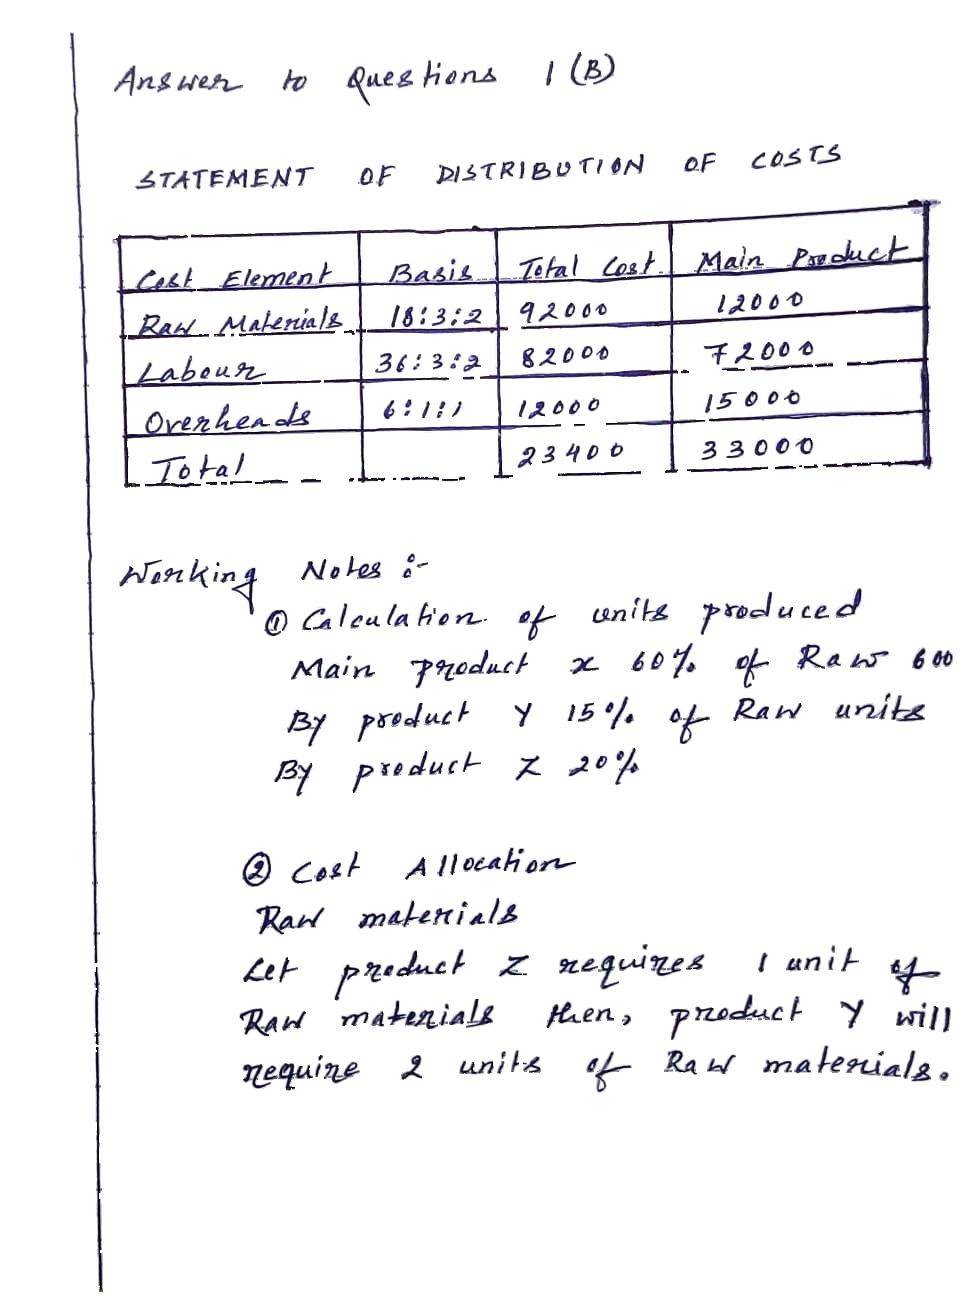 Answer to Questions 1 (B)
STATEMENT OF DISTRIBUTION OF COSTS
Cost Element Basis Total Cost Main Product
Raw Materials 18:3:2 92000 12000
Labour 36:3:2 82000 72000
Overheads 6:1:1 12000 15000
Total 23400 33000
Working Notes :-
① Calculation of units produced
Main product x 60% of Raw 600
By product Y 15% of Raw units
By product Z 20%
② Cost Allocation
Raw materials
Let product Z requires 1 unit of
Raw materials then, product Y will
require 2 units of Raw materials.